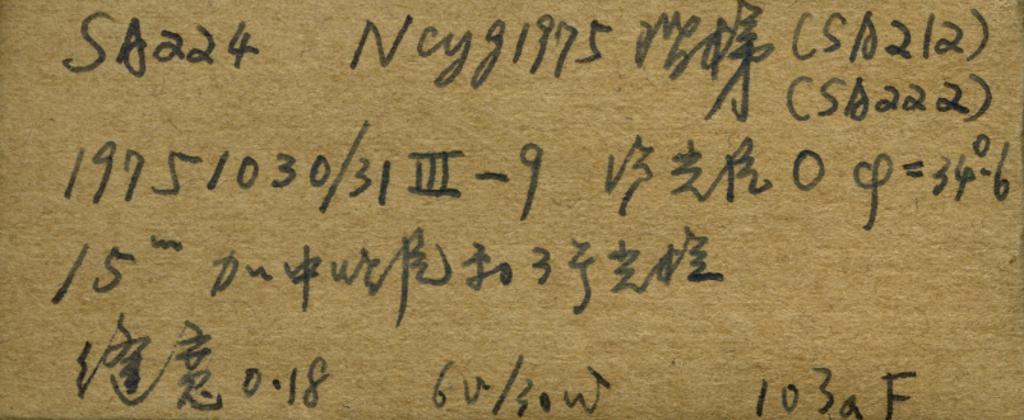 SA224 Ncyg1975 阶梯 (SA212)
(SA222)
19751030/31 III-9 冷光阑 0 φ=34°.6
15ᵐ 加中性阑和3号光栏
缝宽 0.18 6v/30w 103aF